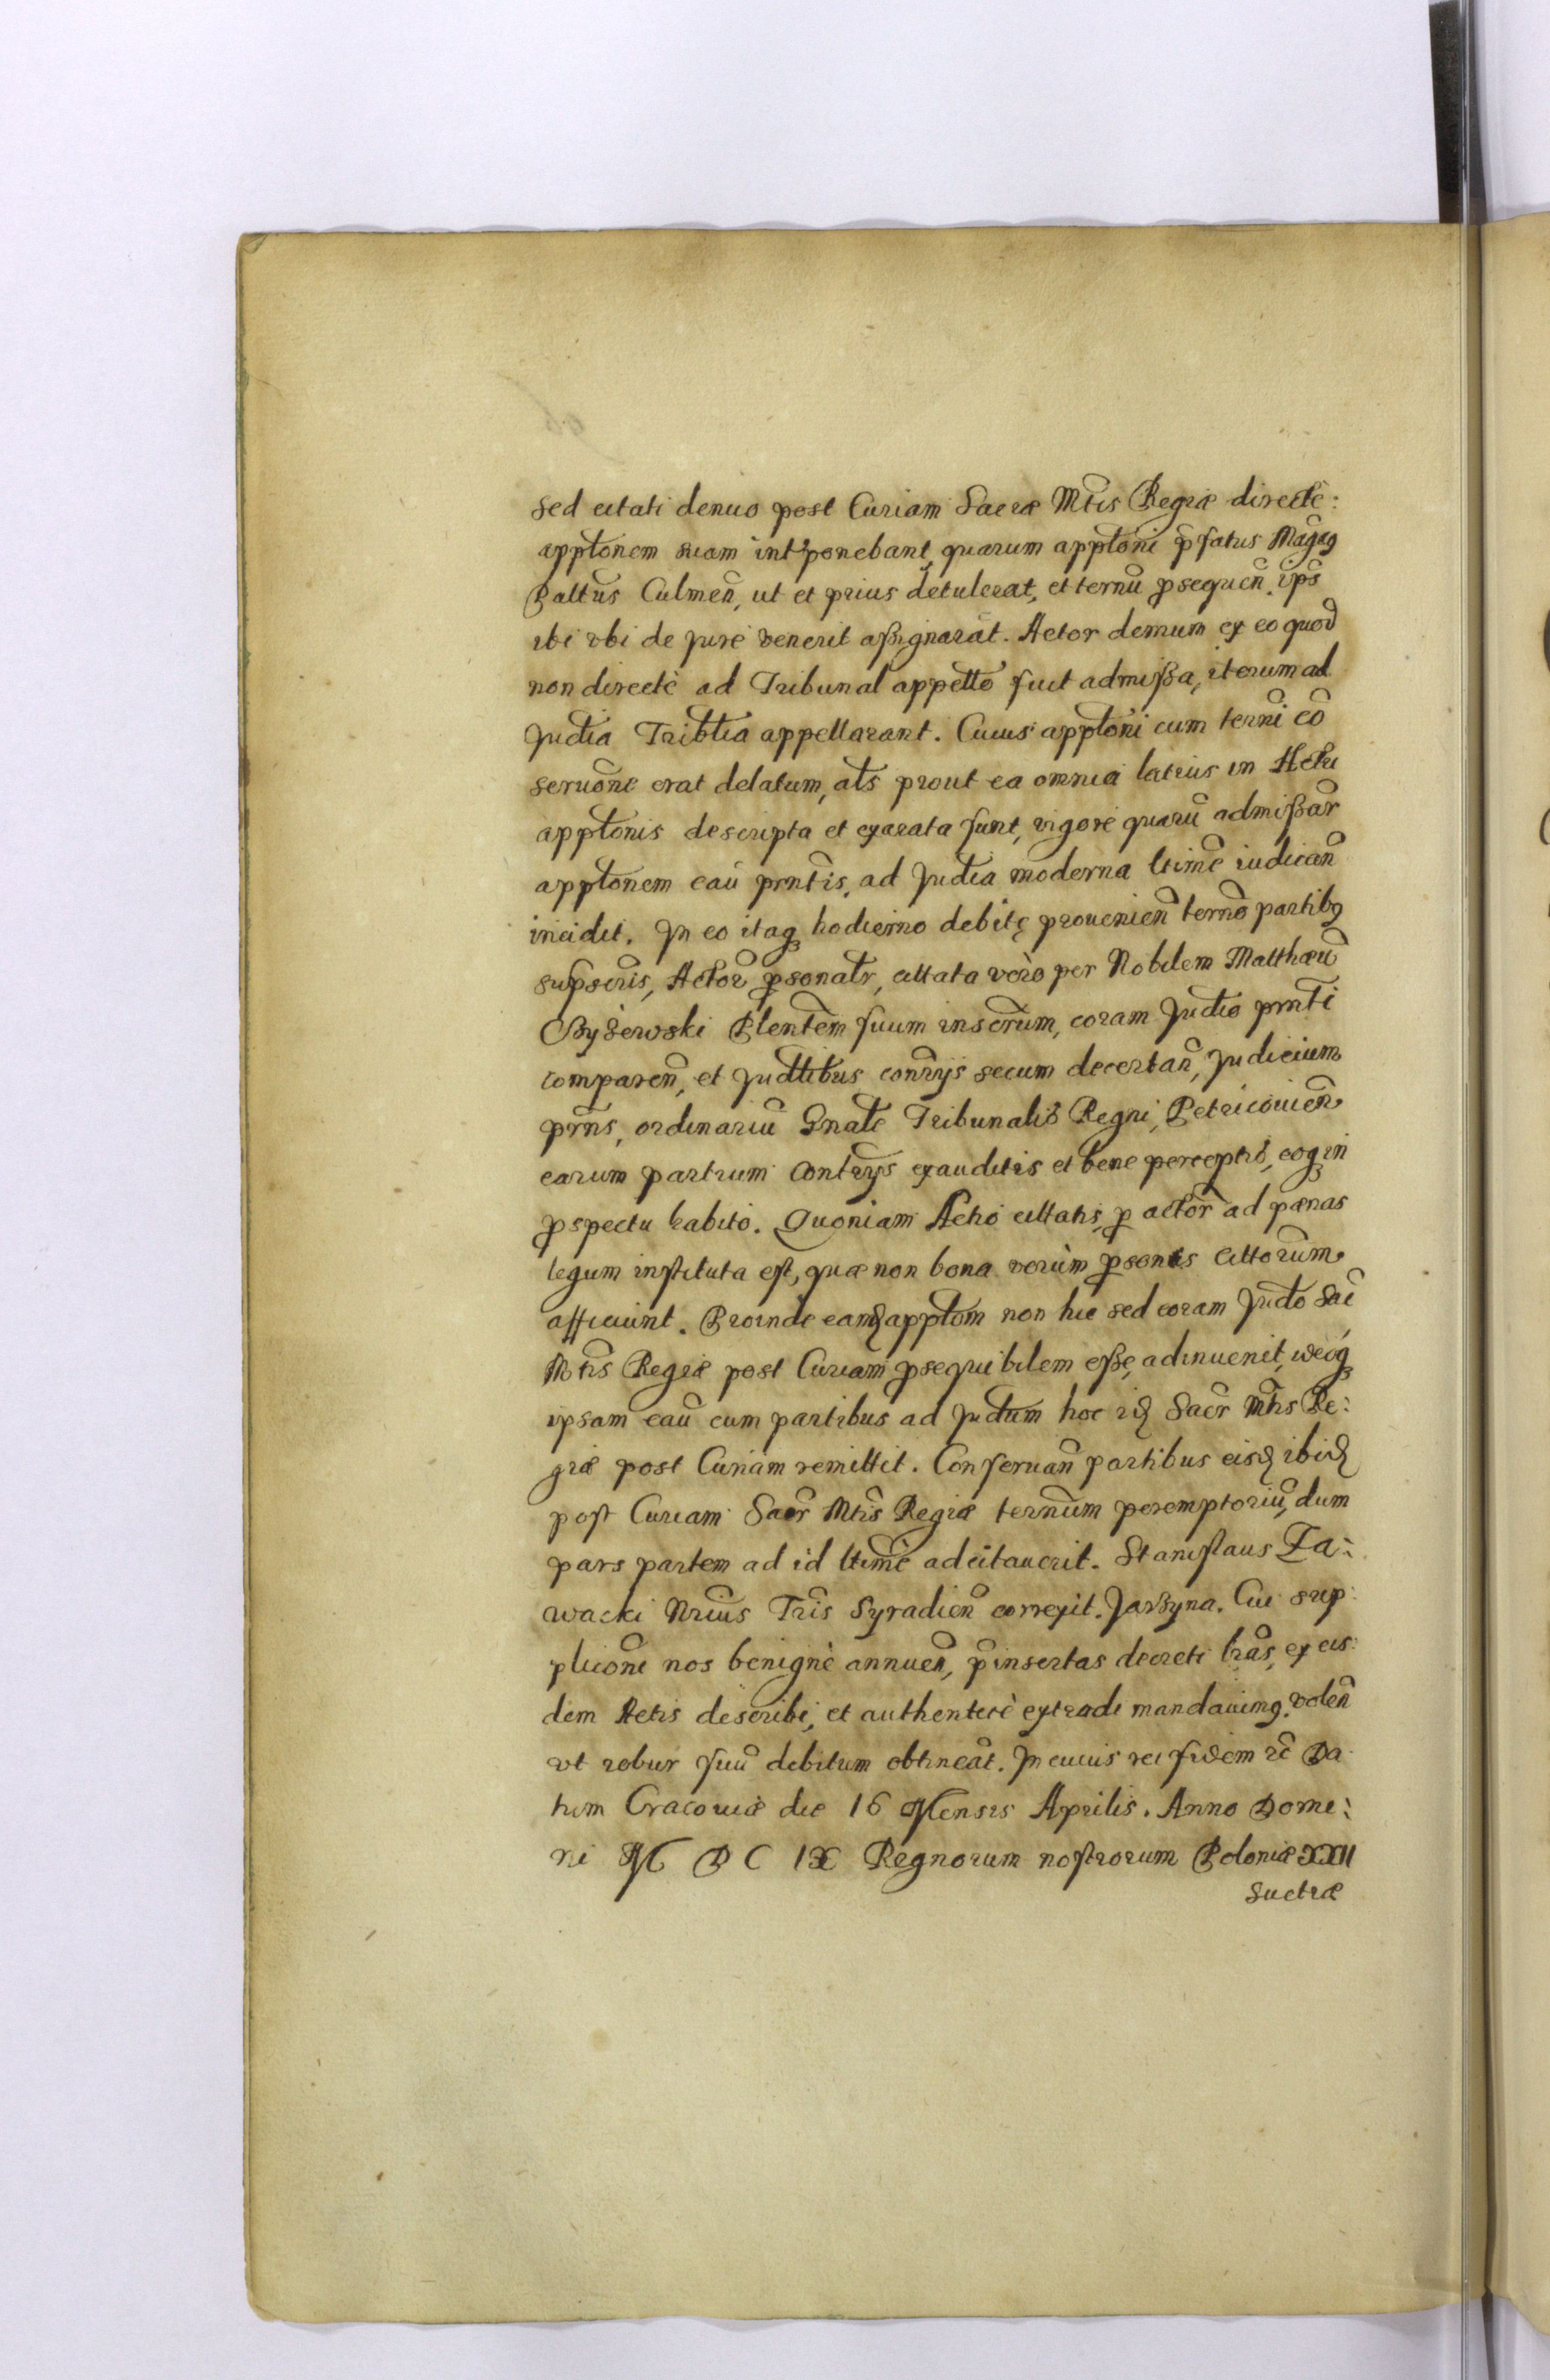 sed citati denuo post Curiam Sacræ Mtis Regiæ directè:
appłonem suam intponebant, quarum appłoni pfatus Magcg
Pałtus Culmen̄, ut et prius detulerat, et ternū psequen̄. ips
ibi vbi de jure venerit aßignarat. Actor demum ex eo quod
non directè ad Tribunal appełło fuit admißa, iterum ad
Judia Tribtia appellarant. Cuius appłoni cum terni co
seruōne erat delatum, ałs prout ea omnia latius in Actu
appłonis descripta et exarata sunt, vigore quarū admißar
appłonem caū prntis, ad Judia moderna łtimē iudican̄
incidit. Jn eo itaq hodierno debitę prouenien̄ ternō partibg
supscris, Actor psonałr, cittata verò per Nobilem Matthæū
Byżewski Płentem suum inscrum, coram Judio prnti
comparen̄, et Judłibus conrijs secum decertan̄, Judicium
prns, ordinariū Gnałe Tribunalis Regni, Petricouien̄
earum partium Contrijs exauditis et bene perceptis, eoq in
pspectu habito. Quoniam Actio cittatis, p actor ad pænas
legum instituta est, quæ non bona verùm psonas Cittorum
afficiunt. Proinde eamq appłom non hic sed coram Judo Sac
Mtis Regiæ post Curiam psequibilem eße, adinuenit, ideoq
ipsam caū cum partibus ad Judium hoc idq Sacr Mtis Re:
giæ post Curiam remittit. Conseruan̄ partibus eisq ibiq
post Curiam Sacr Mtis Regiæ ternum peremptoriū, dum
pars partem ad id łtimē adcitauerit. Stanislaus Za:
wacki Nrius Tris Syradien̄ correxit. Jarzyna. Cui sup:
plicōni nos benignè annuen̄, pinsertas decreti lras, ex eis:
dem Actis describi, et authenticè extradi mandauimg. volen̄
vt robur suū debitum obtineat. Jn cuius rei fidem &c Da
tum Cracouiæ die 16 Mensis Aprilis. Anno Domi:
ni M D C IX Regnorum nostrorum Poloniæ XXII
Suetiæ